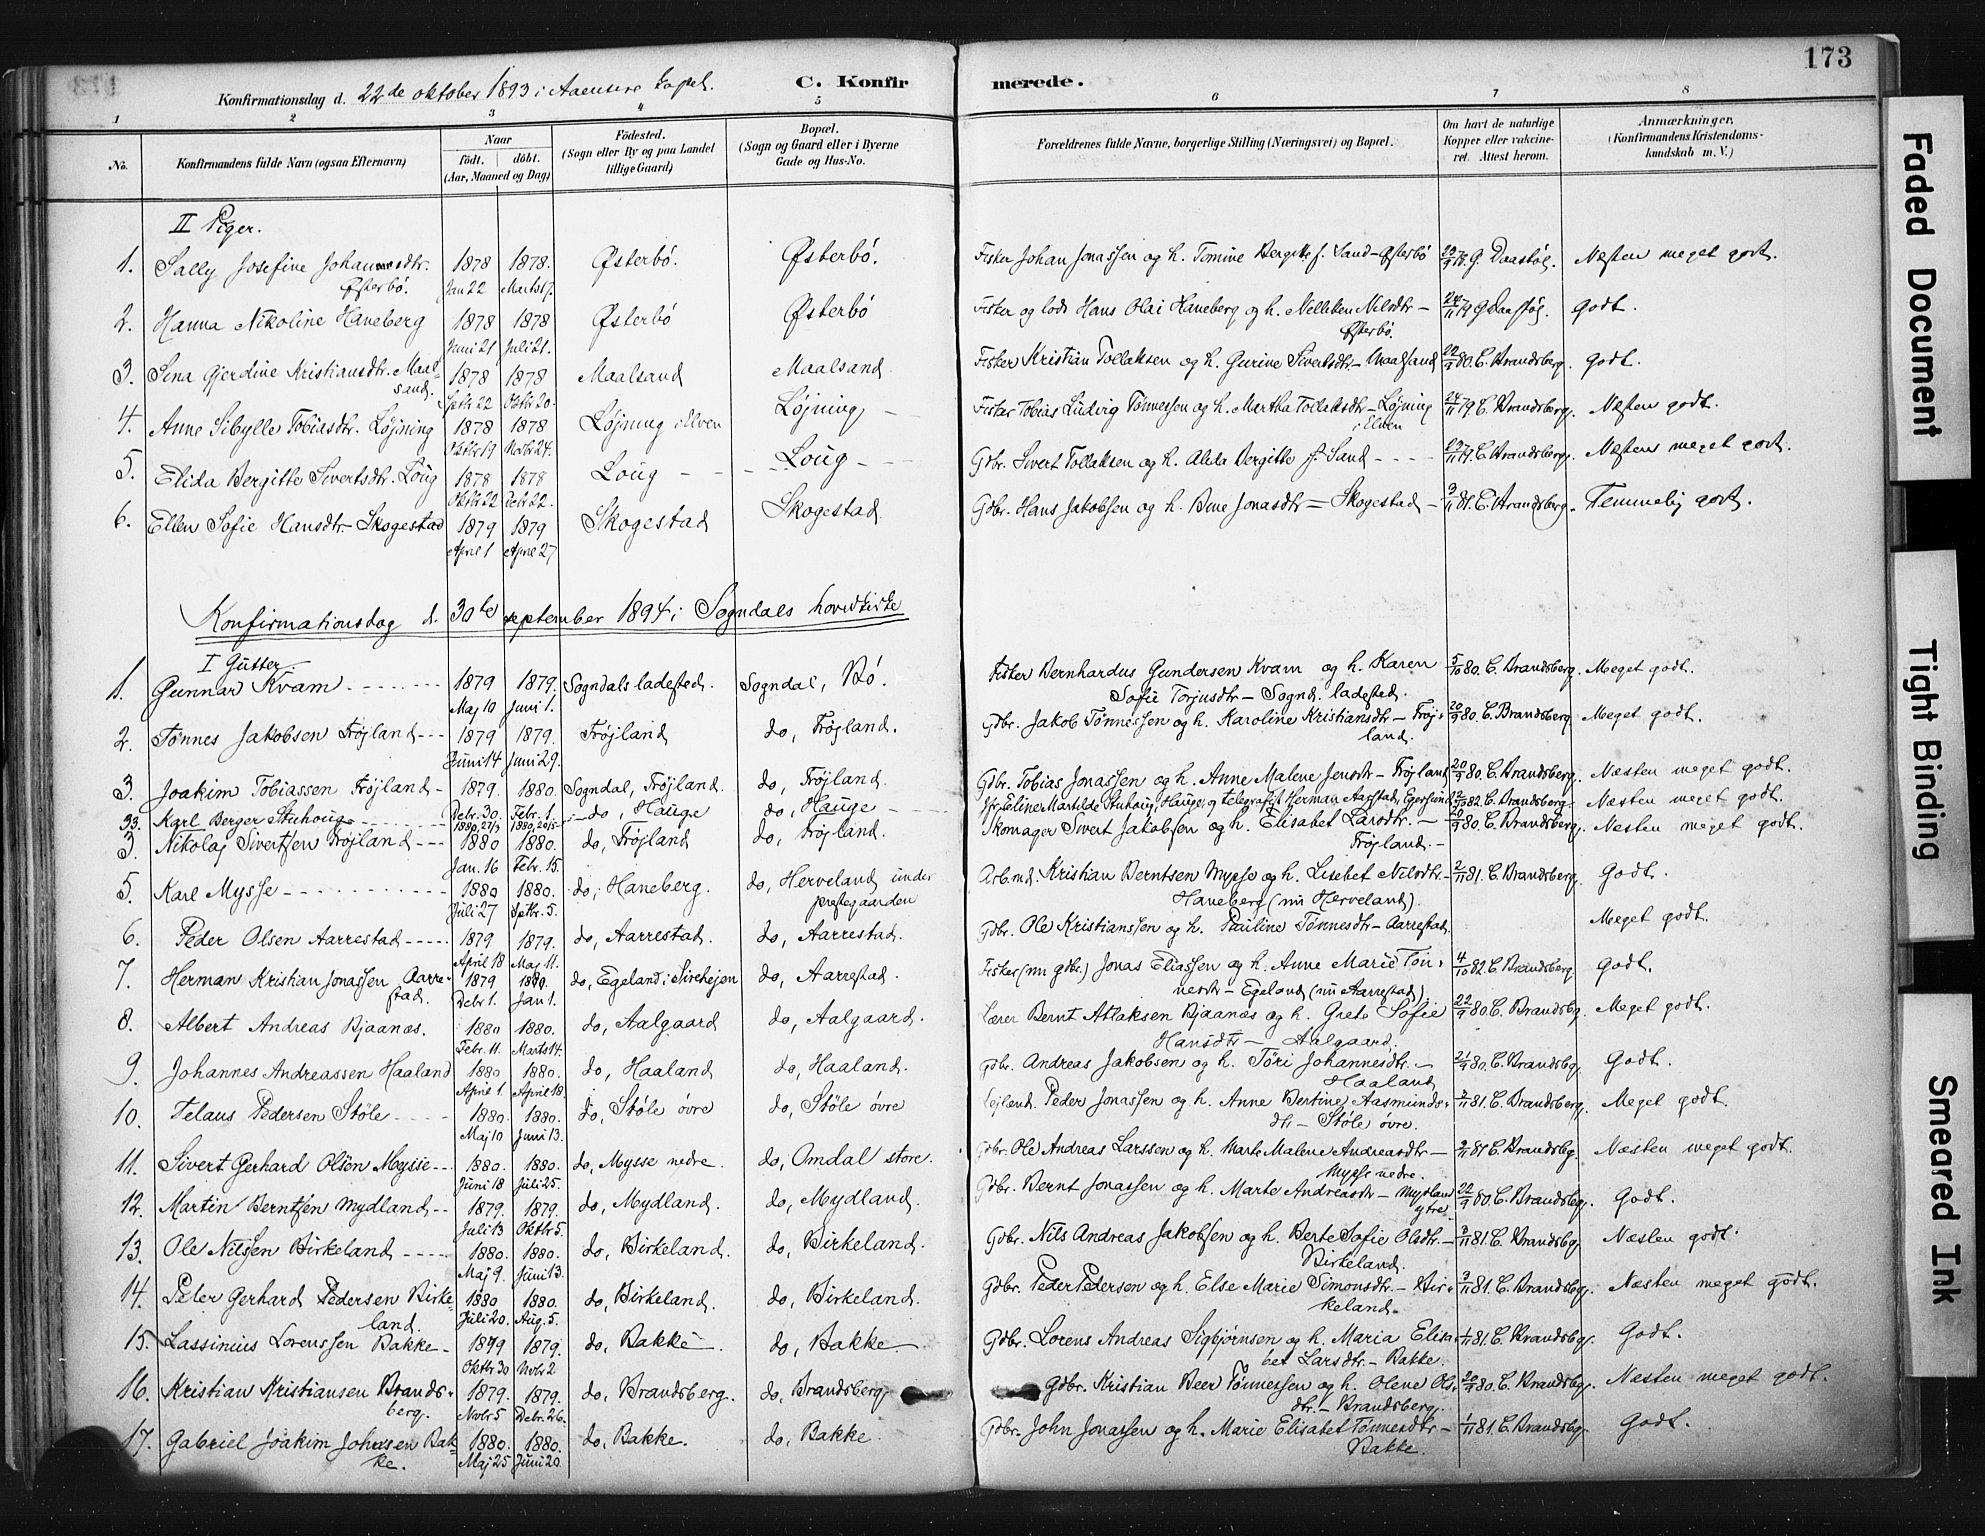 173
Konfirmationsdag d. 22de oktober 1893 i Aaensire kapel.
C. Konfirmerede.
1 2 3 4 5 6 7 8
No.
Konfirmandens fulde Navn (ogsaa Efternavn)
Naar
født. døbt.
(Aar, Maaned og Dag)
Fødested.
(Sogn eller By og paa Landet
tillige Gaard)
Bopæl.
(Sogn og Gaard eller i Byerne
Gade og Hus-No.
Forældrenes fulde Navne, borgerlige Stilling (Næringsvei) og Bopæl.
Om havt de naturlige
Kopper eller vakcine-
ret. Attest herom.
Anmærkninger.
(Konfirmandens Kristendoms-
kundskab m. V.)
II Piger.
1. Sally Josefine Johannesdtr. 1878 1878. Østerbø. Østerbø. Fisker Johan Jonassen og h. Tomine Bergitte f. Sand - Østerbø Næsten meget godt.
Østerbø. Jan 22 Marts 17.
2. Hanna Nikoline Haneberg 1878 1878 Østerbø Østerbø Fisker og lods Hans Olai Haneberg og h. Nelliken Nilsdtr - godt.
Juni 21 Juli 21. Østerbø.
3. Sina Gjerdine Kristiansdtr. Maal- 1878 1878 Maalsand Maalsand. Fisker Kristian Tollaksen og h. Gurine Sivertsdtr - Maalsand 22/9 80. C. Brandsberg. godt.
sand. Septr 22 Oktbr 20.
4. Anne Sibylle Tobiasdtr. Løjning 1878 1878 Løjning i Elven Løjning - Fisker Tobias Ludvig Tønnessen og h. Martha Tollaksdtr - Løjning 24/11 79 C. Brandsberg. Næsten godt.
Oktbr 19 Novbr 24. i Elven
5. Elida Bergitte Sivertsdtr. Loug 1878 1878 Loug - - Loug - - Gdbr. Sivert Tollaksen og h. Alida Bergitte f. Sand - - - - C. Brandsberg. Næsten meget godt.
Oktbr 22
6. Ellen Sofie Hansdtr - Skogestad 1879 1879 Skogestad Skogestad. Gdbr. Hans Jakobsen og h. Bine Jonasdtr = Skogestad - 3/11 81. C. Brandsberg. Temmelig godt.
April 1 April 27
Konfirmationsdag d. 30te september 1894 i Sogndals hovedkirke
I Gutter.
1. Gunnar Kvam - - - 1879 1879. Sogndals ladested. Sogndal, Bø. Fisker Bernhardus Gundersen Kvam og h. Karen 5/10 80. C. Brandsberg. Meget godt.
Maj 10 Juni 1. Sofie Torjusdtr - Sognd. ladested.
2. Tønnes Jakobsen Frøjland - - - 1879 1879. Frøjland do, Frøjland. Gdbr. Jakob Tønnessen og h. Karoline Kristiansdtr - Frøj- 20/9 80. C. Brandsberg Meget godt.
Juni 14 Juni 29. land.
3. Joakim Tobiassen Frøjland - 1879. 1880. Sogndal, Frøjland. do, Frøjland. Gdbr. Tobias Jonassen og h. Anne Malene Jensdtr - Frøjland 20/9 80. C. Brandsberg. Næsten meget godt.
Debr. 30. Febr. 1.
33. Karl Berger Stuhoug - - - do, Hauge do, Hauge - og telegrafist Herman Aarstad, Egersund C. Brandsberg - Næsten meget godt.
3. Nikolaj Sivertsen Frøjland - - - 1880 1880. do, Frøjland do, Frøjland. Skomager Sivert Jakobsen og h. Elisabet Larsdtr. - 80. C. Brandsberg. Næsten meget godt.
Jan. 16 Febr. 15. Frøjland. -
5. Karl Mysse - - - 1880 1880. do, Haneberg. do, Herveland under Arb.md. Kristian Berntsen Mysse og h. Lisebet Nilsdtr. - 2/11 81. C. Brandsberg. Godt.
Juli 27 Septbr. 5. prestegaarden Haneberg (nu Herveland).
6. Peder Olsen Aarrestad - - - - 1879 1879. do, Aarrestad. do, Aarrestad. Gdbr. Ole Kristianssen og h. Pauline Tønnesdtr - Aarrestad. Meget godt.
April 18 Maj 11.
7. Herman Kristian Jonassen Aarre- 1879 1880. do, Egeland i Sirehejen do, Aarrestad. Fisker (nu gdbr.) Jonas Eliassen og h. Anne Marie Tøn- 4/10 82. C. Brandsberg. Godt.
stad. Debr 1. Jan 1. nesdtr - Egeland (nu Aarrestad)
8. Albert Andreas Bjaanæs. 1880 1880. do, Aalgaard do, Aalgaard. Lærer Bernt Atlaksen Bjaanæs og h. Grete Sofie 22/9 80. C. Brandsbg. Meget godt.
Febr. 11. Marts 14. Hansdtr - Aalgaard.
9. Johannes Andreassen Haaland 1880 1880. do, Haaland do, Haaland. Gdbr. Andreas Jakobsen og h. Tøri Johannesdtr. - 21/9 80. C. Brandsberg. Godt.
April 1. April 18. Haaland
10. Telaus Pedersen Støle - - - 1880. 1880. do, Støle øvre do, Støle øvre Lejlænd. Peder Jonassen og h. Anne Bertine Aasmunds- 2/11 81. C. Brandsberg. Meget godt.
Maj 10 Juni 13. dtr - Støle øvre.
11. Sivert Gerhard Olsen Mysse - - 1880. 1880. do, Mysse nedre. do, Omdal store. Gdbr. Ole Andreas Larssen og h. Marte Malene Andreasdtr - 2/11 81 C. Brandsbg. Næsten meget godt.
Juni 18 Juli 25. Mysse nedre.
12. Martin Berntsen Mydland - - 1879. 1879. do, Mydland. do, Mydland. Gdbr. Bernt Jonassen og h. Marte Andreasdtr - Mydland 22/9 80. C. Brandsbg. Godt.
Juli 13 Oktbr 5. ytre
13. Ole Nilsen Birkeland - - - - 1880. 1880. do, Birkeland. do, Birkeland. Gdbr. Nils Andreas Jakobsen og h. Berte Sofie Olsdtr. - 3/11 81. C. Brandsbg. Næsten godt.
Maj 9. Juni 13. Birkeland.
14. Peter Gerhard Pedersen Birke- 1880 1880. do, Birkeland. do, Birkeland. Gdbr. Peder Pedersen og h. Else Marie Simonsdtr. - Bir- 3/11 81. C. Brandsbg. Næsten meget godt.
land. Juli 20. Aug. 5. keland.
15. Lassinius Lorenssen Bakke - 1879 1879. do, Bakke do, Bakke Gdbr. Lorens Andreas Sigbjørnsen og h. Maria Elisa- 1/11 81. C. Brandsbg. Godt.
Oktbr 30 Novbr 2 bet Larsdtr. - Bakke.
16. Kristian Kristiansen Brands- 1879. 1879. do, Brandsberg. do, Brandsberg Gdbr. Kristian Beer Tønnessen og h. Olene Ols- 20/9 80. C. Brandsbg. Næsten meget godt.
berg. Novbr 5 Debr. 26. dtr. - Brandsberg.
17. Gabriel Joakim Johnsen Bak- 1880. 1880. do, Bakke. do, Bakke Gdbr. John Jonassen og h. Marie Elisabet Tønnesdtr - 1/11 81. C. Brandsbg. Godt.
ke. Maj 25 Juni 20. Bakke.
Faded Document
Tight Binding
Smeared Ink